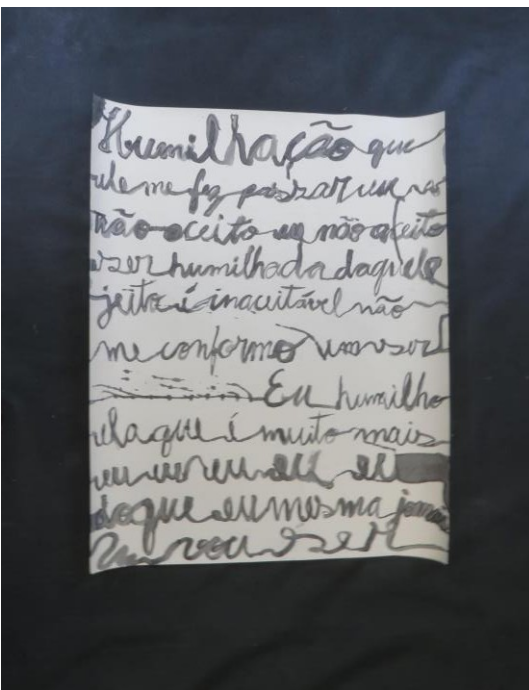 Humilhação que
ele me fez passar eu
não aceito eu não aceito
ser humilhada daquele
jeito é inaceitável não
me conformo um ser
Eu humilho
ela que é muito mais
eu eu eu eu eu eu
do que eu mesma jamais
vou ser